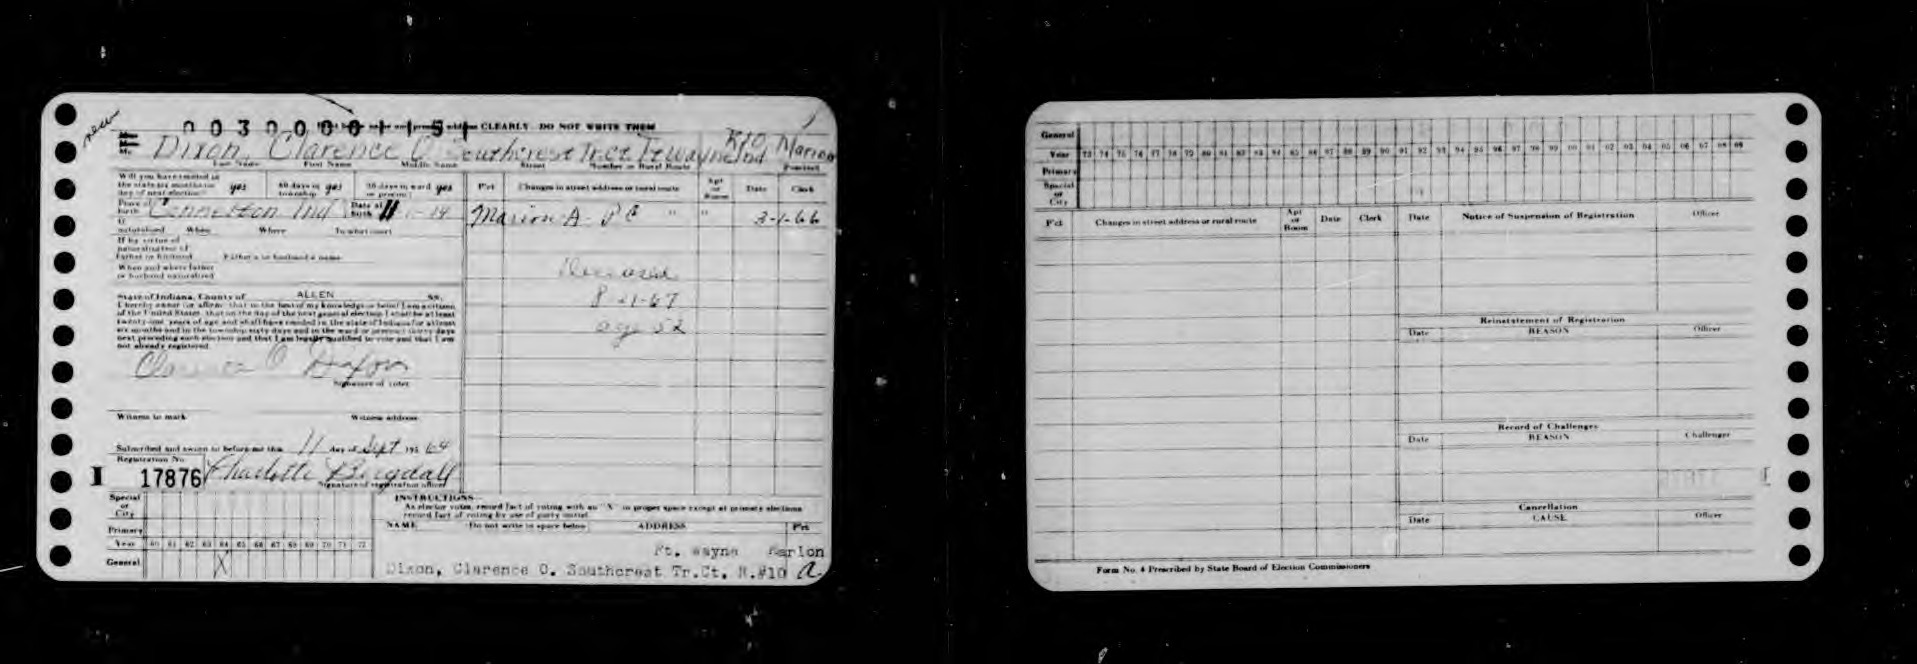 new
CLEARLY. DO NOT WRITE THEM
Dixon Clarence C Southcrest Tr.Ct Ft Wayne Ind R10 Marion
Last Name First Name Middle Name Street Number or Rural Route Precinct
Will you have resided in the state six months on day of next election? yes 60 days in township yes 30 days in ward or precinct yes
Place of birth Cannelton Ind Date of birth 11 14
If naturalized When Where In what court
If by virtue of naturalization of Father or husband Father's or husband's name
When and where father or husband naturalized
State of Indiana, County of ALLEN SS.
I hereby swear (or affirm) that to the best of my knowledge or belief I am a citizen
of the United States, that on the day of the next general election I shall be at least
twenty-one years of age and shall have resided in the state of Indiana for at least
six months and in the township sixty days and in the ward or precinct thirty days
next preceding such election and that I am legally qualified to vote and that I am
not already registered.
Clarence C Dixon
Signature of voter
Witness to mark Witness address
Subscribed and sworn to before me this 11 day of Sept 195 64
Registration No.
I 17876 Charlotte
Signature of registration officer
P'ct Changes in street address or rural route Apt or Room Date Clerk
Marion A " " 3-1-66
Deceased
8 -1-67
age 52
Special or City
Primary
Year 60 61 62 63 64 65 66 67 68 69 70 71 72
General X
INSTRUCTIONS
As elector votes, record fact of voting with an "X" in proper space except at primary elections
record fact of voting by use of party initial
NAME Do not write in space below ADDRESS P'ct
Ft. Wayne Marion
Dixon, Clarence C. Southcrest Tr.Ct. R.#10 A
General
Year 73 74 75 76 77 78 79 80 81 82 83 84 85 86 87 88 89 90 91 92 93 94 95 96 97 98 99 00 01 02 03 04 05 06 07 08 09
Primary
Special or City
P'ct Changes in street address or rural route Apt or Room Date Clerk
Date Notice of Suspension of Registration Officer
Reinstatement of Registration
Date REASON Officer
Record of Challenges
Date REASON Challenger
Cancellation
Date CAUSE Officer
Form No. 4 Prescribed by State Board of Election Commissioners